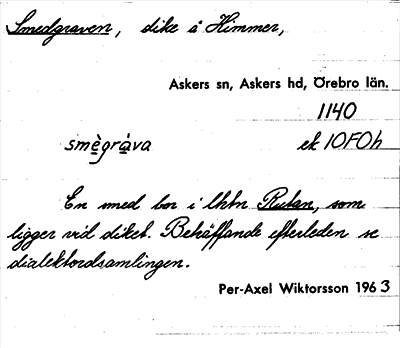 Smedgraven, dike å Himmer,
Askers sn, Askers hd, Örebro län.
1140
smègràva ek 10F0h
En smed bor i lhtn Rutan, som
ligger vid diket. Beträffande efterleden se
dialektordsamlingen.
Per-Axel Wiktorsson 1963